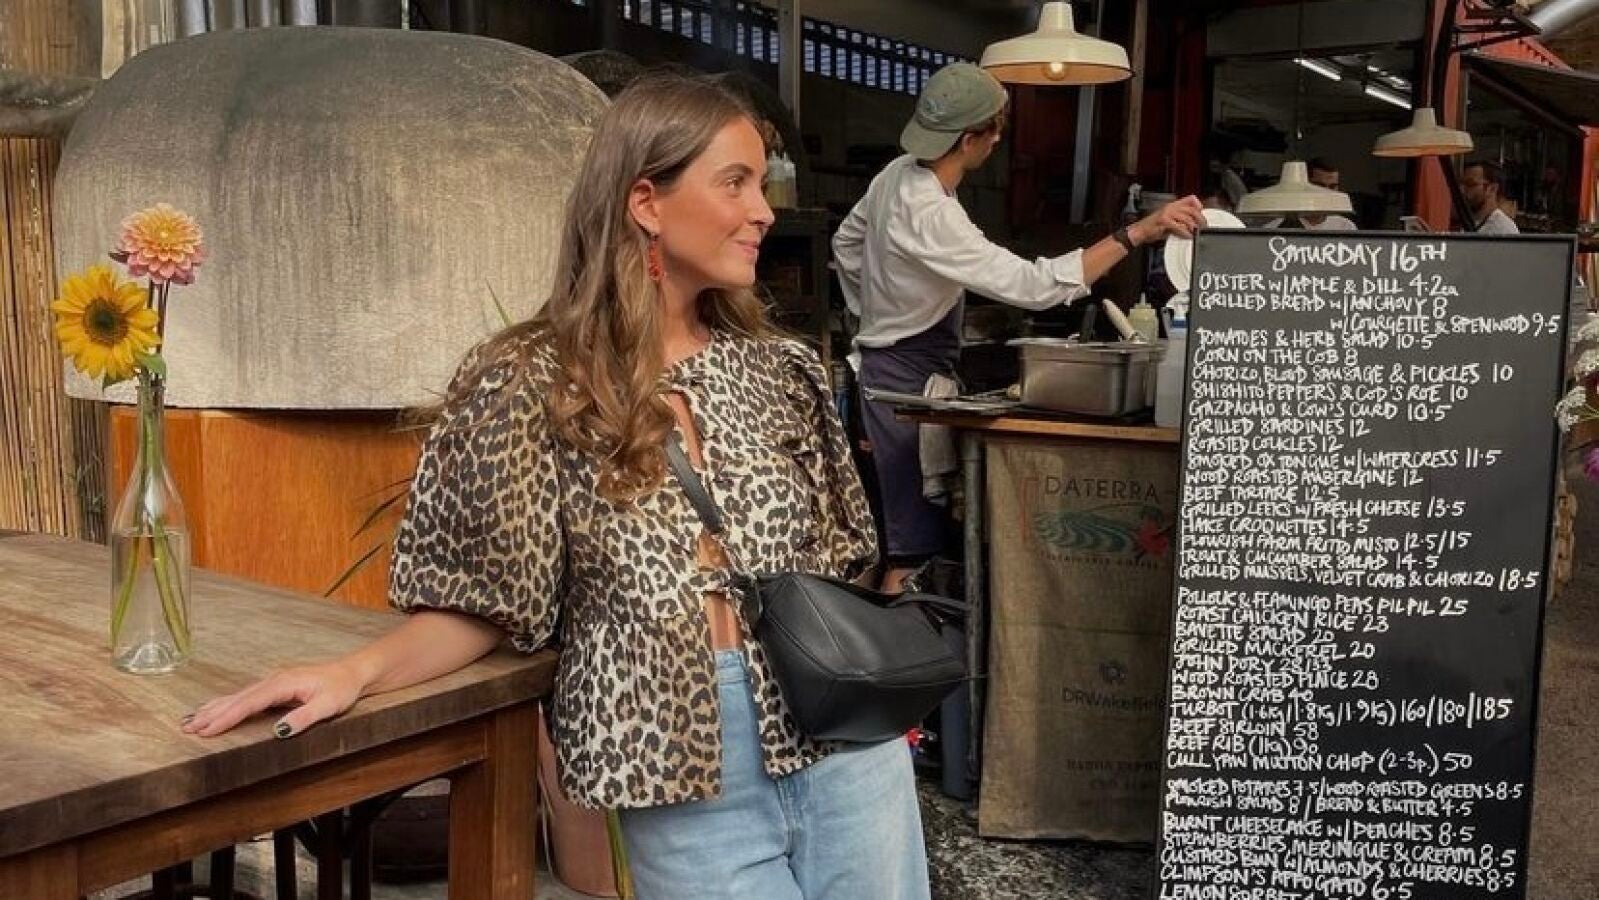 SATURDAY 16TH
OYSTER w/APPLE & DILL 4.2ea
GRILLED BREAD w/ANCHOVY 8
w/COURGETTE & SPENWOOD 9.5
TOMATOES & HERB SALAD 10.5
CORN ON THE COB 8
CHORIZO, BLOOD SAUSAGE & PICKLES 10
SHISHITO PEPPERS & COD'S ROE 10
GAZPACHO & COW'S CURD 10.5
GRILLED SARDINES 12
ROASTED COCKLES 12
SMOKED OX TONGUE w/WATERCRESS 11.5
WOOD ROASTED AUBERGINE 12
BEEF TARTARE 12.5
GRILLED LEEKS w/FRESH CHEESE 13.5
HAKE CROQUETTES 14.5
FLOURISH FARM FRITTO MISTO 12.5/15
TROUT & CUCUMBER SALAD 14.5
GRILLED MUSSELS, VELVET CRAB & CHORIZO 18.5
POLLOCK & FLAMINGO PEAS PIL PIL 25
ROAST CHICKEN RICE 23
BAVETTE SALAD 20
GRILLED MACKEREL 20
JOHN DORY 28/33
WOOD ROASTED PLAICE 28
BROWN CRAB 40
TURBOT (1.6Kg/1.8Kg/1.9Kg) 160/180/185
BEEF SIRLOIN 58
BEEF RIB (1Kg) 90
CULL YAW MUTTON CHOP (2-3p.) 50
SMOKED POTATOES 7.5/WOOD ROASTED GREENS 8.5
FLOURISH SALAD 8 / BREAD & BUTTER 4.5
BURNT CHEESECAKE w/PEACHES 8.5
STRAWBERRIES, MERINGUE & CREAM 8.5
CUSTARD BUN w/ALMONDS & CHERRIES 8.5
CLIMPSON'S AFFOGATO 6.5
LEMON SORBET
DATERRA
DRWakefield